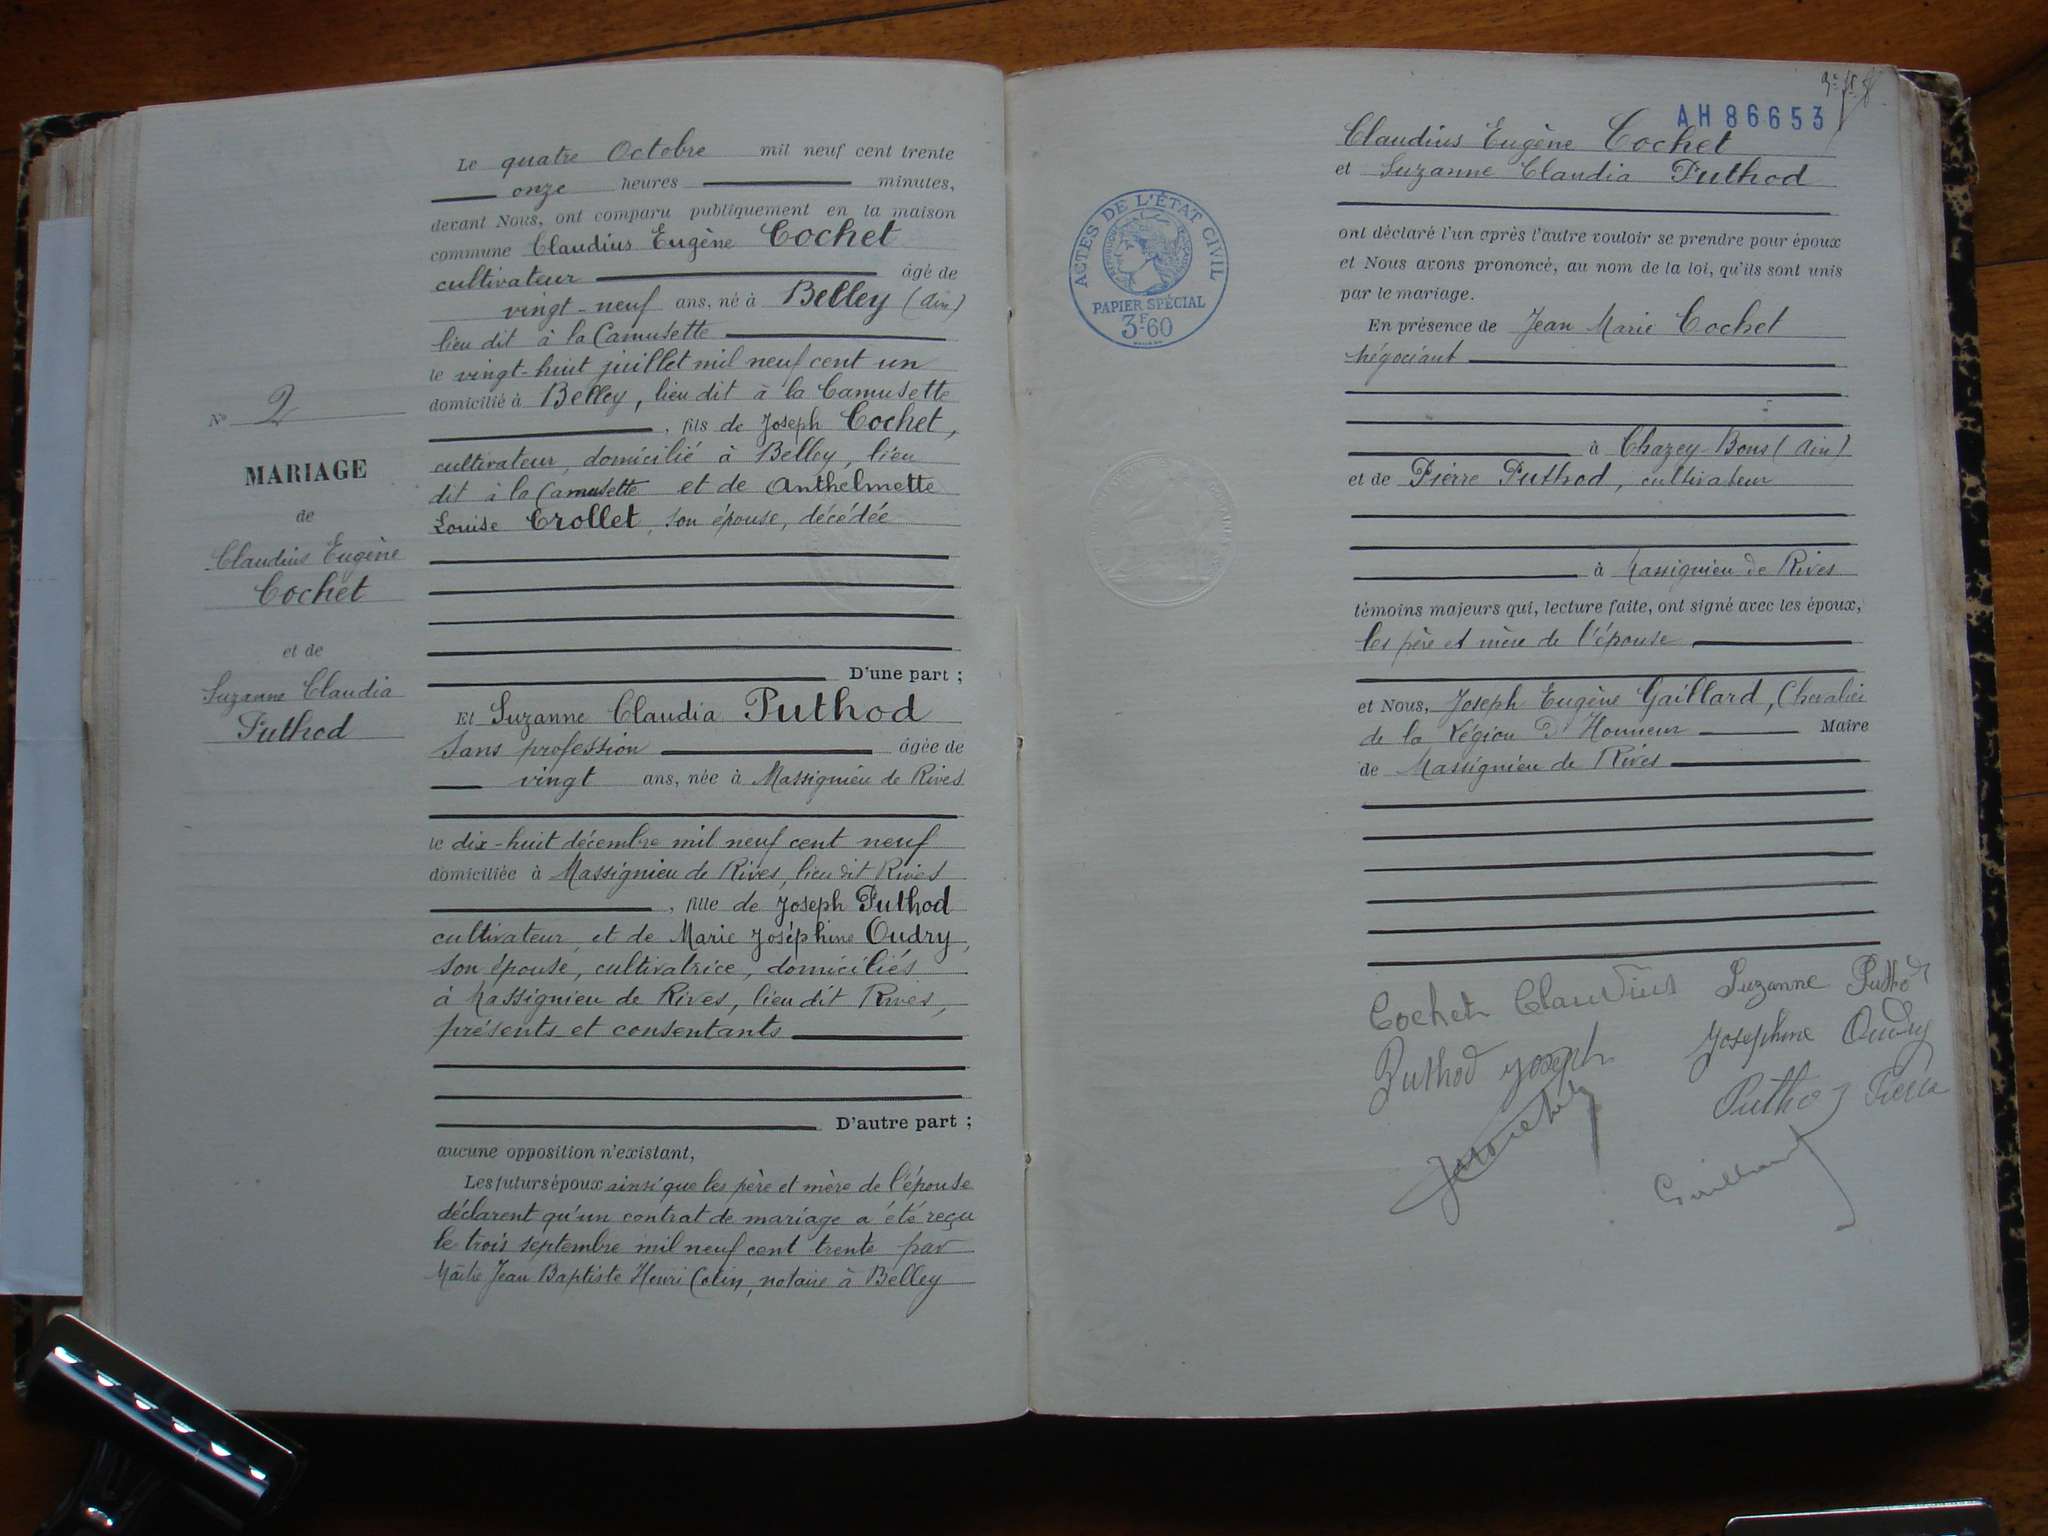 N° 2
MARIAGE
de
Claudius Eugène
Cochet
et de
Suzanne Claudia
Puthod
Le quatre Octobre mil neuf cent trente
onze heures minutes,
devant Nous, ont comparu publiquement en la maison
commune Claudius Eugène Cochet
cultivateur âgé de
vingt-neuf ans, né à Belley (Ain)
lieu dit à la Camusette
le vingt-huit juillet mil neuf cent un
domicilié à Belley, lieu dit à la Camusette
, fils de Joseph Cochet,
cultivateur, domicilié à Belley, lieu
dit à la Camusette et de Anthelmette
Louise Crollet, son épouse, décédée
D'une part ;
Et Suzanne Claudia Puthod
sans profession âgée de
vingt ans, née à Massignieu de Rives
le dix-huit décembre mil neuf cent neuf
domiciliée à Massignieu de Rives, lieu dit Rives
, fille de Joseph Puthod
cultivateur, et de Marie Joséphine Oudry,
son épouse, cultivatrice, domiciliés
à Massignieu de Rives, lieu dit Rives,
présents et consentants
D'autre part ;
aucune opposition n'existant,
Les futurs époux ainsi que les père et mère de l'épouse
déclarent qu'un contrat de mariage a été reçu
le trois septembre mil neuf cent trente par
Maître Jean Baptiste Henri Cotin, notaire à Belley
AH86653
ACTES DE L'ÉTAT CIVIL
RÉPUBLIQUE FRANÇAISE
PAPIER SPÉCIAL
3F60
Claudius Eugène Cochet
et Suzanne Claudia Puthod
ont déclaré l'un après l'autre vouloir se prendre pour époux
et Nous avons prononcé, au nom de la loi, qu'ils sont unis
par le mariage.
En présence de Jean Marie Cochet
négociant
à Chazey-Bons (Ain)
et de Pierre Puthod, cultivateur
à Massignieu de Rives
témoins majeurs qui, lecture faite, ont signé avec les époux,
les père et mère de l'épouse
et Nous, Joseph Eugène Gaillard, Chevalier
de la Légion d'Honneur Maire
de Massignieu de Rives
Cochet Claudius Suzanne Puthod
Puthod Joseph Josephine Oudry
Puthod Pierre
Gaillard